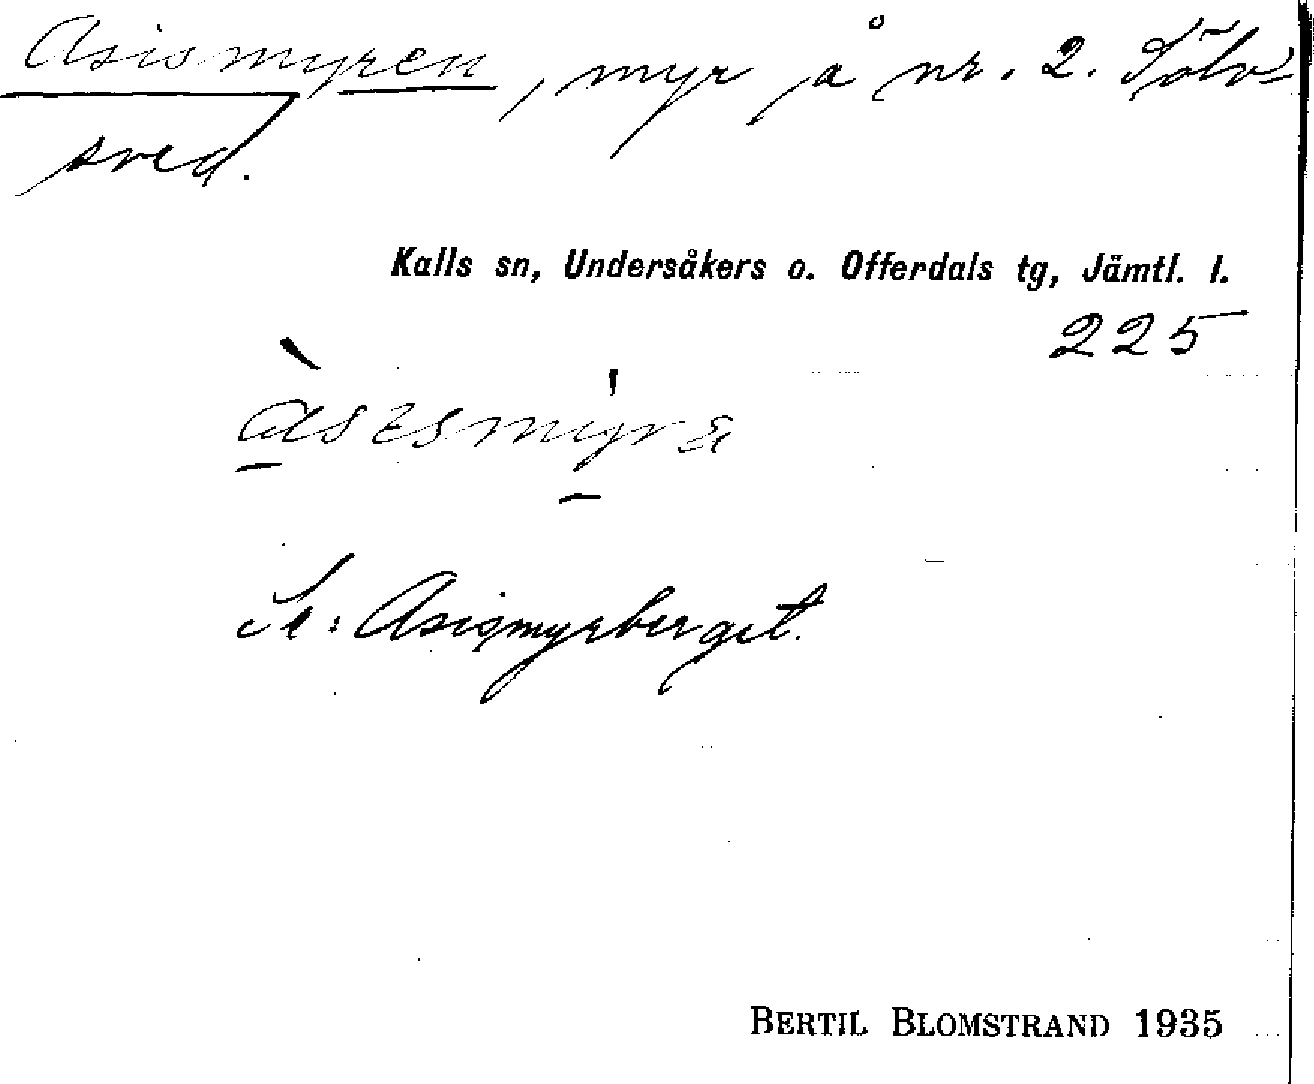 Asismyren, myr på nr. 2. Sölv-
sved.
Kalls sn, Undersåkers o. Offerdals tg, Jämtl. l.
225
Se: Asismyrberget.
BERTIL BLOMSTRAND 1935